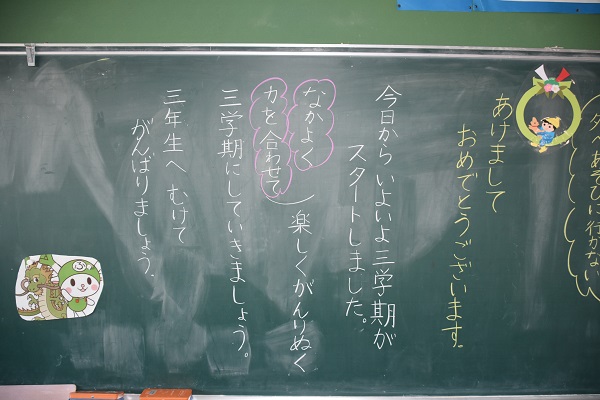 へあそびに行かない
あけまして
おめでとうございます。
今日から いよいよ三学期が
スタートしました。
なかよく
力を合わせて
楽しくがんりぬく
三学期にしていきましょう。
三年生へ むけて
がんばりましょう。